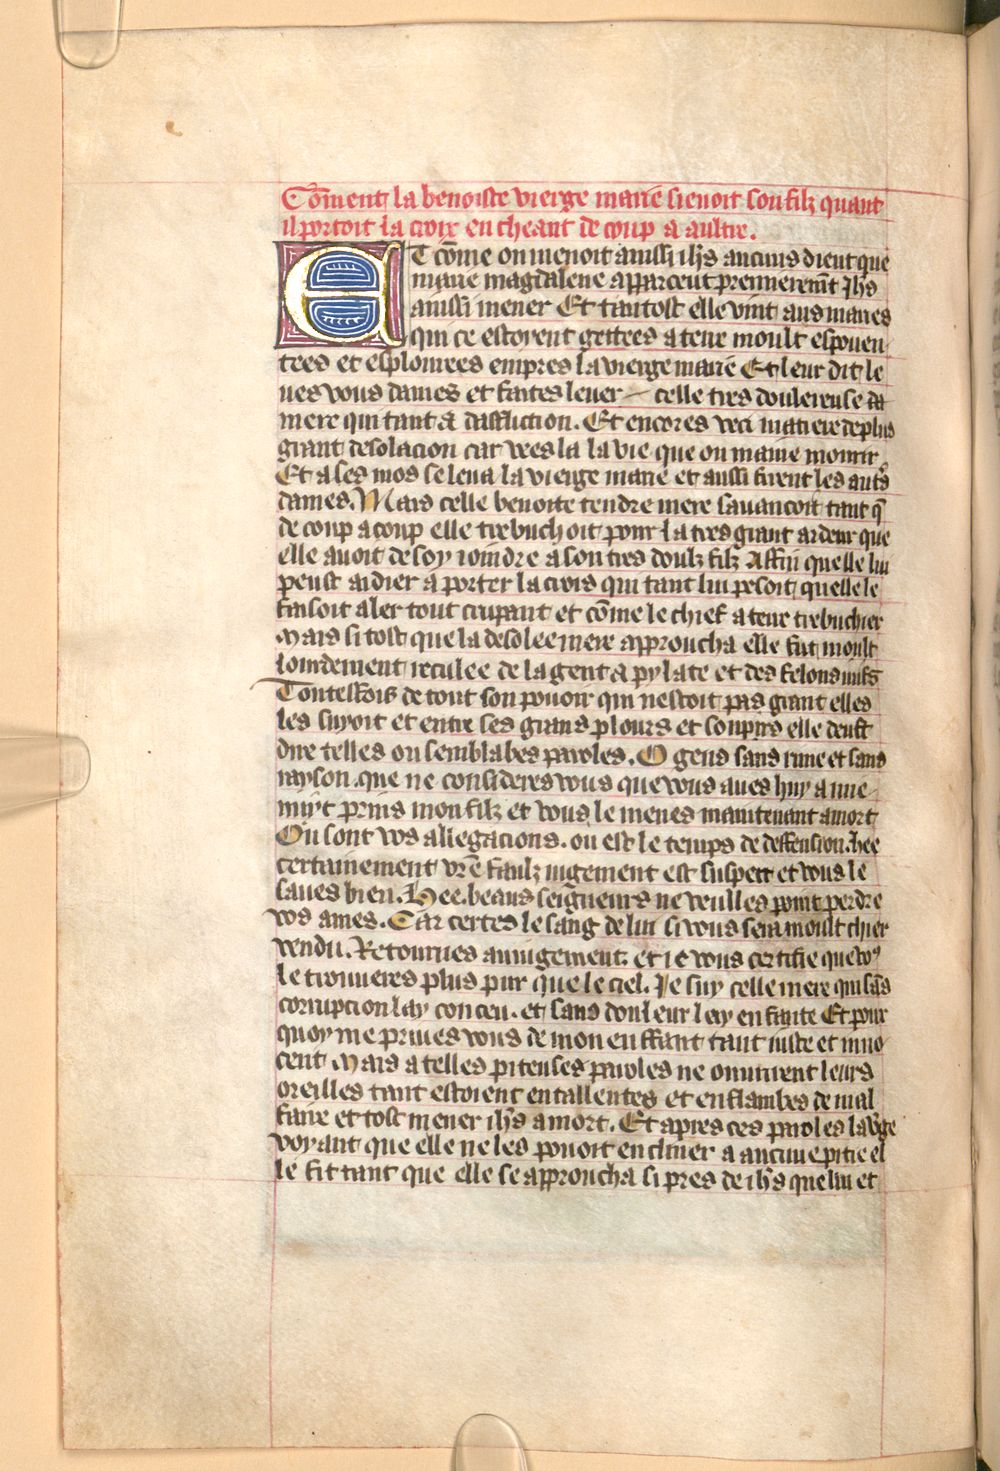 Cõment la benoiste vierge marie sievoit son filz quant
il portoit la croix en cheant de coup a aultre.
Et cõme on menoit aussi ihs aucuns dient que
marie magdalene apparceut premieremẽt Jhs
aussi mener Et tantost elle vint aus maries
qui ce estoyent gettees a terre moult espouen
tees et esplourees empres la vierge marie Et leur dit le
ves vous dames et faites lever celle tres doulereuse da
mere qui tant a dafliction. Et encores veci matiere de plus
grant desolacion car vees la la vie que on maine mourir.
Et a ses mos se leva la vierge marie et aussi firent les autˢ
dames. Mais celle benoite tendre mere savancoit tant q̃
de coup a coup elle trebuchoit pour la tres grant ardeur que
elle avoit de soy ioindre a son tres doulz filz Affin quelle lui
peust aidier a porter la crois qui tant lui pesoit, quelle le
faisoit aler tout crupant et cõme le chief a terre trebuchier
Mais si tost que la desolee mere approucha elle fut moult
lourdement reculee de la gent a pylate et des felons iuifs
Toutesfois de tout son povoir qui nestoit pas grant elles
les suyoit et entre ses grans plours et soupirs elle deust
dire telles ou semblabes paroles. O gens sans rune et sans
rayson. que ne consideres vous que vous aves huy a mie
nuyt prins mon filz et vous le menes maintenant a mort
Ou sont vos allegacions. ou est le temps de deffension. hee
certainement vr̃e faulz iugement est suspect et vous le
saves bien. Hee. beaus seigneurs ne veulles point perdre
vos ames. Car certes le sang de lui si vous sera moult chier
vendu. Retournes au iugement. et ie vous certifie que voꝰ
le trouveres plus pur que le ciel. Je suy celle mere qui sãs
corrupcion lay conceu. et sans douleur lay enfante Et pour
quoy me prives vous de mon enffant tant iuste et inno
cent Mais a telles piteuses paroles ne ouvrirent leurs
oreilles tant estoient entallentes et enflambes de mal
faire et tost mener ihs a mort. Et apres ces paroles la v̾ge
voyant que elle ne les povoit encliner a aucune pitie el
le fit tant que elle se approucha si pres de ihs que lui et